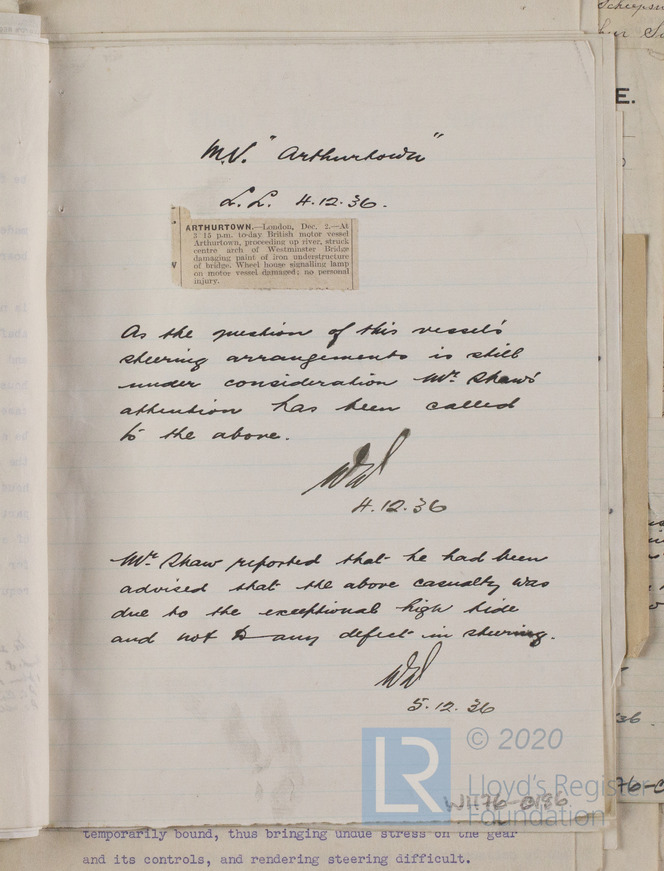 M.V. "Arthurtown"
L.L. 4.12.36.
ARTHURTOWN.—London, Dec. 2.—At
3 15 p.m. to-day British motor vessel
Arthurtown, proceeding up river, struck
centre arch of Westminster Bridge
damaging paint of iron understructure
of bridge. Wheel house signalling lamp
on motor vessel damaged; no personal
injury.
As the question of this vessel's
steering arrangements is still
under consideration Mr. Shaw's
attention has been called
to the above.
4.12.36
Mr. Shaw reported that he had been
advised that the above casualty was
due to the exceptional high tide
and not to any defect in steering.
5.12.36
LR © 2020
Lloyd's Register
Foundation
W1176-0136
temporarily bound, thus bringing undue stress on the gear
and its controls, and rendering steering difficult.